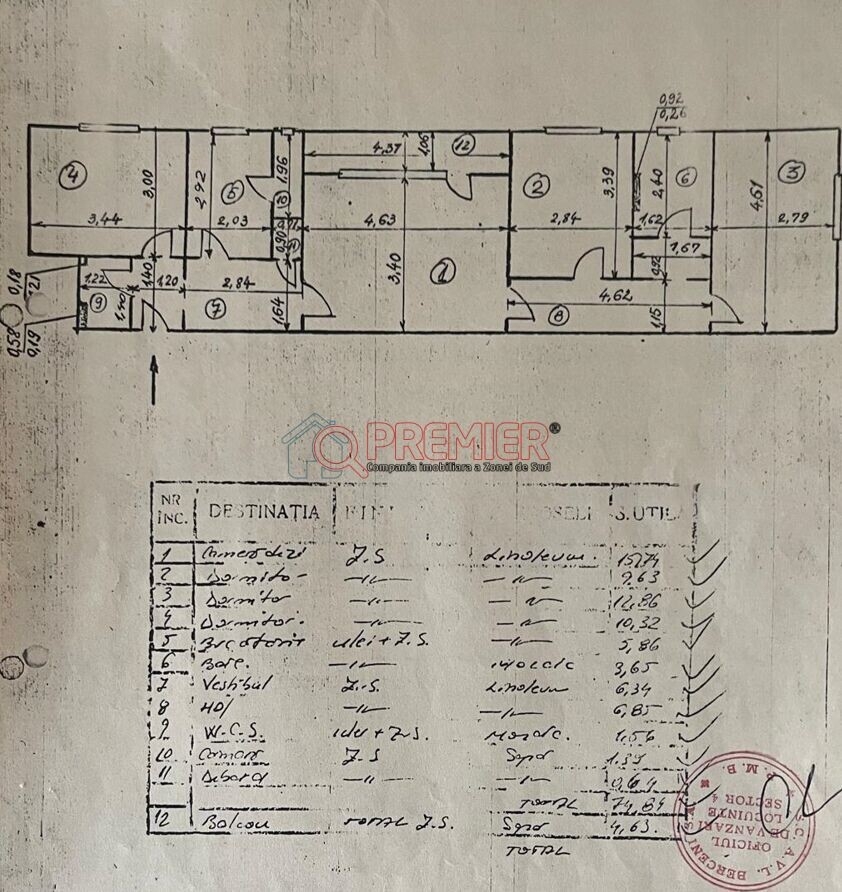 0,92
0,26
4
3,00
2,92
5
1,96
4,37
1,06
12
2
3,39
2,40
6
4,61
3
3,44
2,03
4,63
2,84
1,62
2,79
0,90
1
3,40
1,67
0,92
0,18
1,27
1,22
1,40
1,20
2,84
4,62
9
1,40
7
1,64
8
1,15
0,58
0,19
PREMIER®
Compania imobiliara a Zonei de Sud
NR
INC. DESTINAȚIA FINI DOSELI S.UTIL
1 Z.S Linoleum. 15,74
2 Dormitor —"— —"— 9,63
3 Dormitor —"— —"— 12,86
4 Dormitor. —"— —"— 10,32
5 ulei + Z.S. —"— 5,86
6 Baie. —"— Mozaic 3,65
7 Vestibul Z.S. Linoleum 6,34
8 Hol —"— —"— 6,85
9 W.C.S. ulei + Z.S. Mozaic. 1,56
10 Camara Z.S 1,39
11 Debara —"— —"— 0,64
TOTAL 74,84
12 Balcon Z.S. 4,63
TOTAL
S.C. A.V.L. BERCENI
P.M.B.
OFICIUL
DE VANZARI
LOCUINTE
SECTOR 4